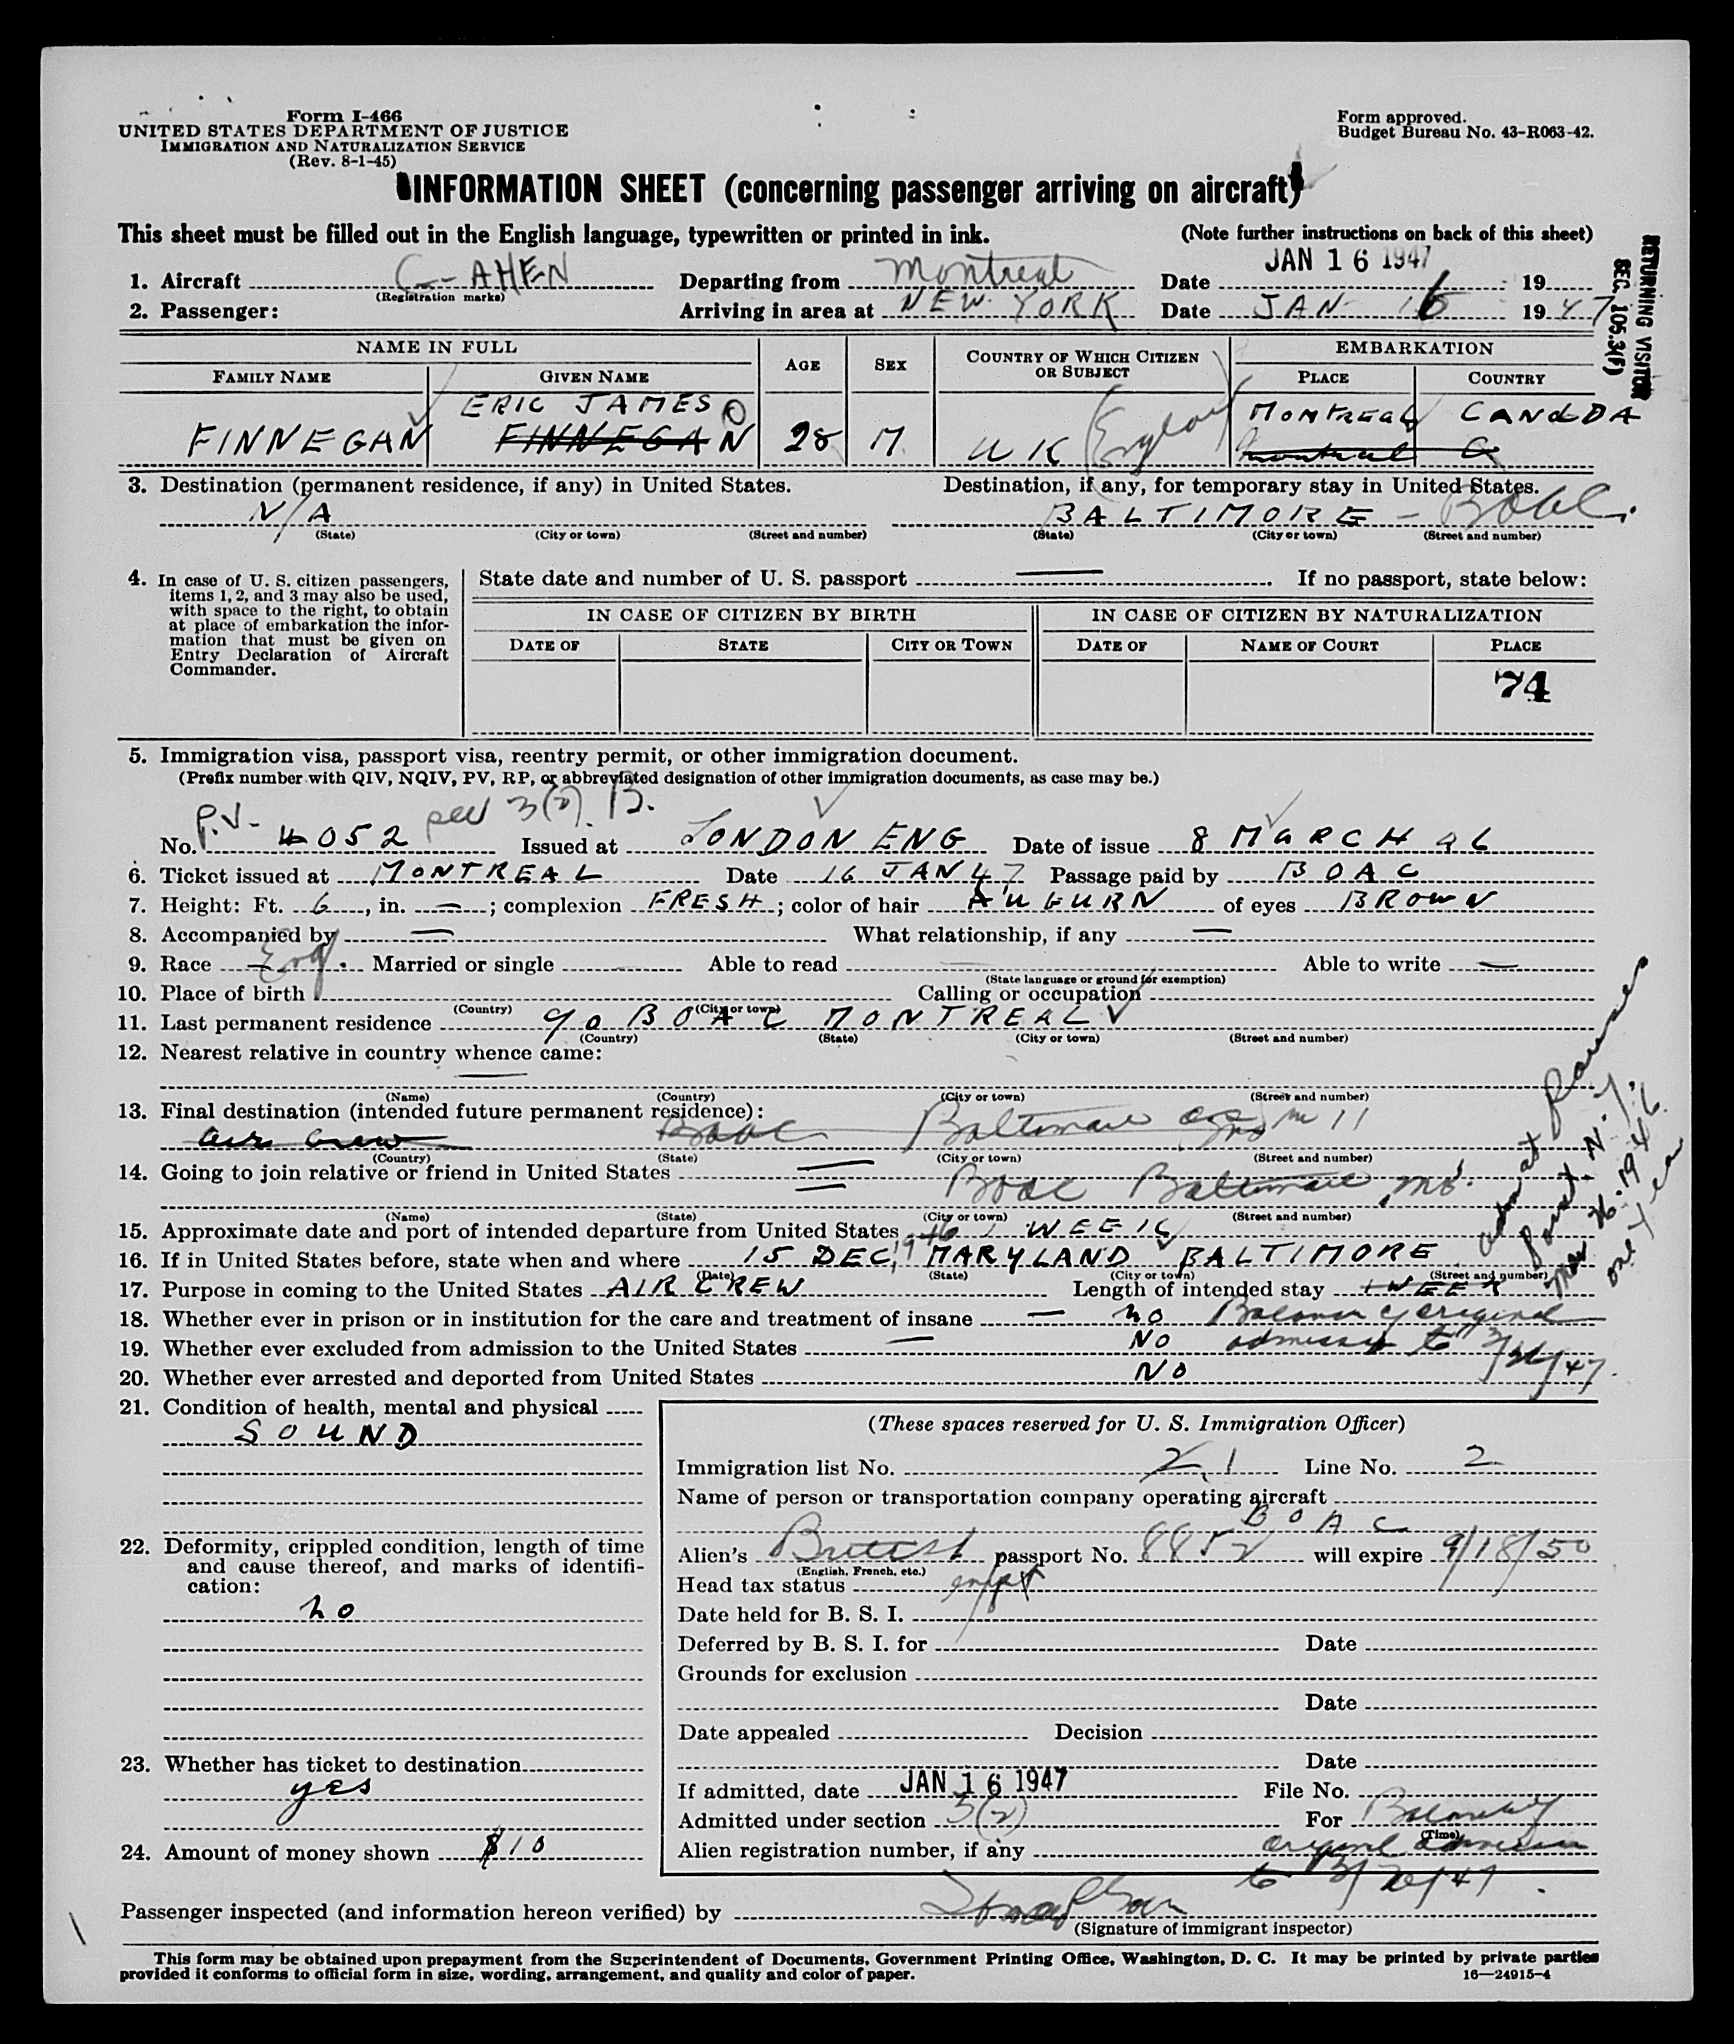 Form I-466
UNITED STATES DEPARTMENT OF JUSTICE
IMMIGRATION AND NATURALIZATION SERVICE
(Rev. 8-1-45)
Form approved.
Budget Bureau No. 43-R063-42.
INFORMATION SHEET (concerning passenger arriving on aircraft)
This sheet must be filled out in the English language, typewritten or printed in ink. (Note further instructions on back of this sheet)
JAN 16 1947
1. Aircraft G-AHEN Departing from Montreal Date 19
(Registration marks)
2. Passenger: Arriving in area at NEW YORK Date JAN 16 1947
RETURNING VISITOR
SEC. 105.3(F)
NAME IN FULL AGE SEX COUNTRY OF WHICH CITIZEN OR SUBJECT EMBARKATION
FAMILY NAME GIVEN NAME PLACE COUNTRY
ERIC JAMES MONTREAL CANADA
FINNEGAN FINNEGAN 28 M UK England Montreal
3. Destination (permanent residence, if any) in United States. Destination, if any, for temporary stay in United States.
N/A BALTIMORE - BOAC.
(State) (City or town) (Street and number) (State) (City or town) (Street and number)
4. In case of U. S. citizen passengers, items 1, 2, and 3 may also be used, with space to the right, to obtain at place of embarkation the information that must be given on Entry Declaration of Aircraft Commander.
State date and number of U. S. passport — If no passport, state below:
IN CASE OF CITIZEN BY BIRTH IN CASE OF CITIZEN BY NATURALIZATION
DATE OF STATE CITY OR TOWN DATE OF NAME OF COURT PLACE
74
5. Immigration visa, passport visa, reentry permit, or other immigration document.
(Prefix number with QIV, NQIV, PV, RP, or abbreviated designation of other immigration documents, as case may be.)
P.V. 3(2) B.
No. 4052 Issued at LONDON ENG Date of issue 8 MARCH 46
6. Ticket issued at MONTREAL Date 16 JAN 47 Passage paid by BOAC
7. Height: Ft. 6, in. —; complexion FRESH; color of hair AUBURN of eyes BROWN
8. Accompanied by — What relationship, if any —
9. Race Eng. Married or single Able to read — Able to write —
(State language or ground for exemption)
10. Place of birth Calling or occupation
(Country) (City or town)
11. Last permanent residence c/o BOAC MONTREAL
(Country) (State) (City or town) (Street and number)
12. Nearest relative in country whence came:
—
(Name) (Country) (City or town) (Street and number)
13. Final destination (intended future permanent residence):
Air Crew BOAC Baltimore
(Country) (State) (City or town) (Street and number)
14. Going to join relative or friend in United States —
— BOAC Baltimore, Md.
(Name) (State) (City or town) (Street and number)
15. Approximate date and port of intended departure from United States 1 WEEK
16. If in United States before, state when and where 15 DEC, 1946 MARYLAND BALTIMORE
(Date) (State) (City or town) (Street and number)
17. Purpose in coming to the United States AIR CREW Length of intended stay 1 WEEK
18. Whether ever in prison or in institution for the care and treatment of insane — no Balance of original
19. Whether ever excluded from admission to the United States — NO admission to 3/26/47.
20. Whether ever arrested and deported from United States NO
Adm at Rouses
Point N.Y.
Mar 26-1946.
one year
21. Condition of health, mental and physical
SOUND
22. Deformity, crippled condition, length of time and cause thereof, and marks of identification:
no
23. Whether has ticket to destination
yes
24. Amount of money shown $10
(These spaces reserved for U. S. Immigration Officer)
Immigration list No. 2, 1 Line No. 2
Name of person or transportation company operating aircraft
BOAC
Alien's British passport No. 8852 will expire 9/18/50
(English, French, etc.)
Head tax status
Date held for B. S. I.
Deferred by B. S. I. for Date
Grounds for exclusion
Date
Date appealed Decision
Date
If admitted, date JAN 16 1947 File No.
Admitted under section 3(2) For Balance of
(Time)
Alien registration number, if any original admission
to 3/26/47.
Passenger inspected (and information hereon verified) by
(Signature of immigrant inspector)
This form may be obtained upon prepayment from the Superintendent of Documents, Government Printing Office, Washington, D. C. It may be printed by private parties
provided it conforms to official form in size, wording, arrangement, and quality and color of paper. 16—24915-4